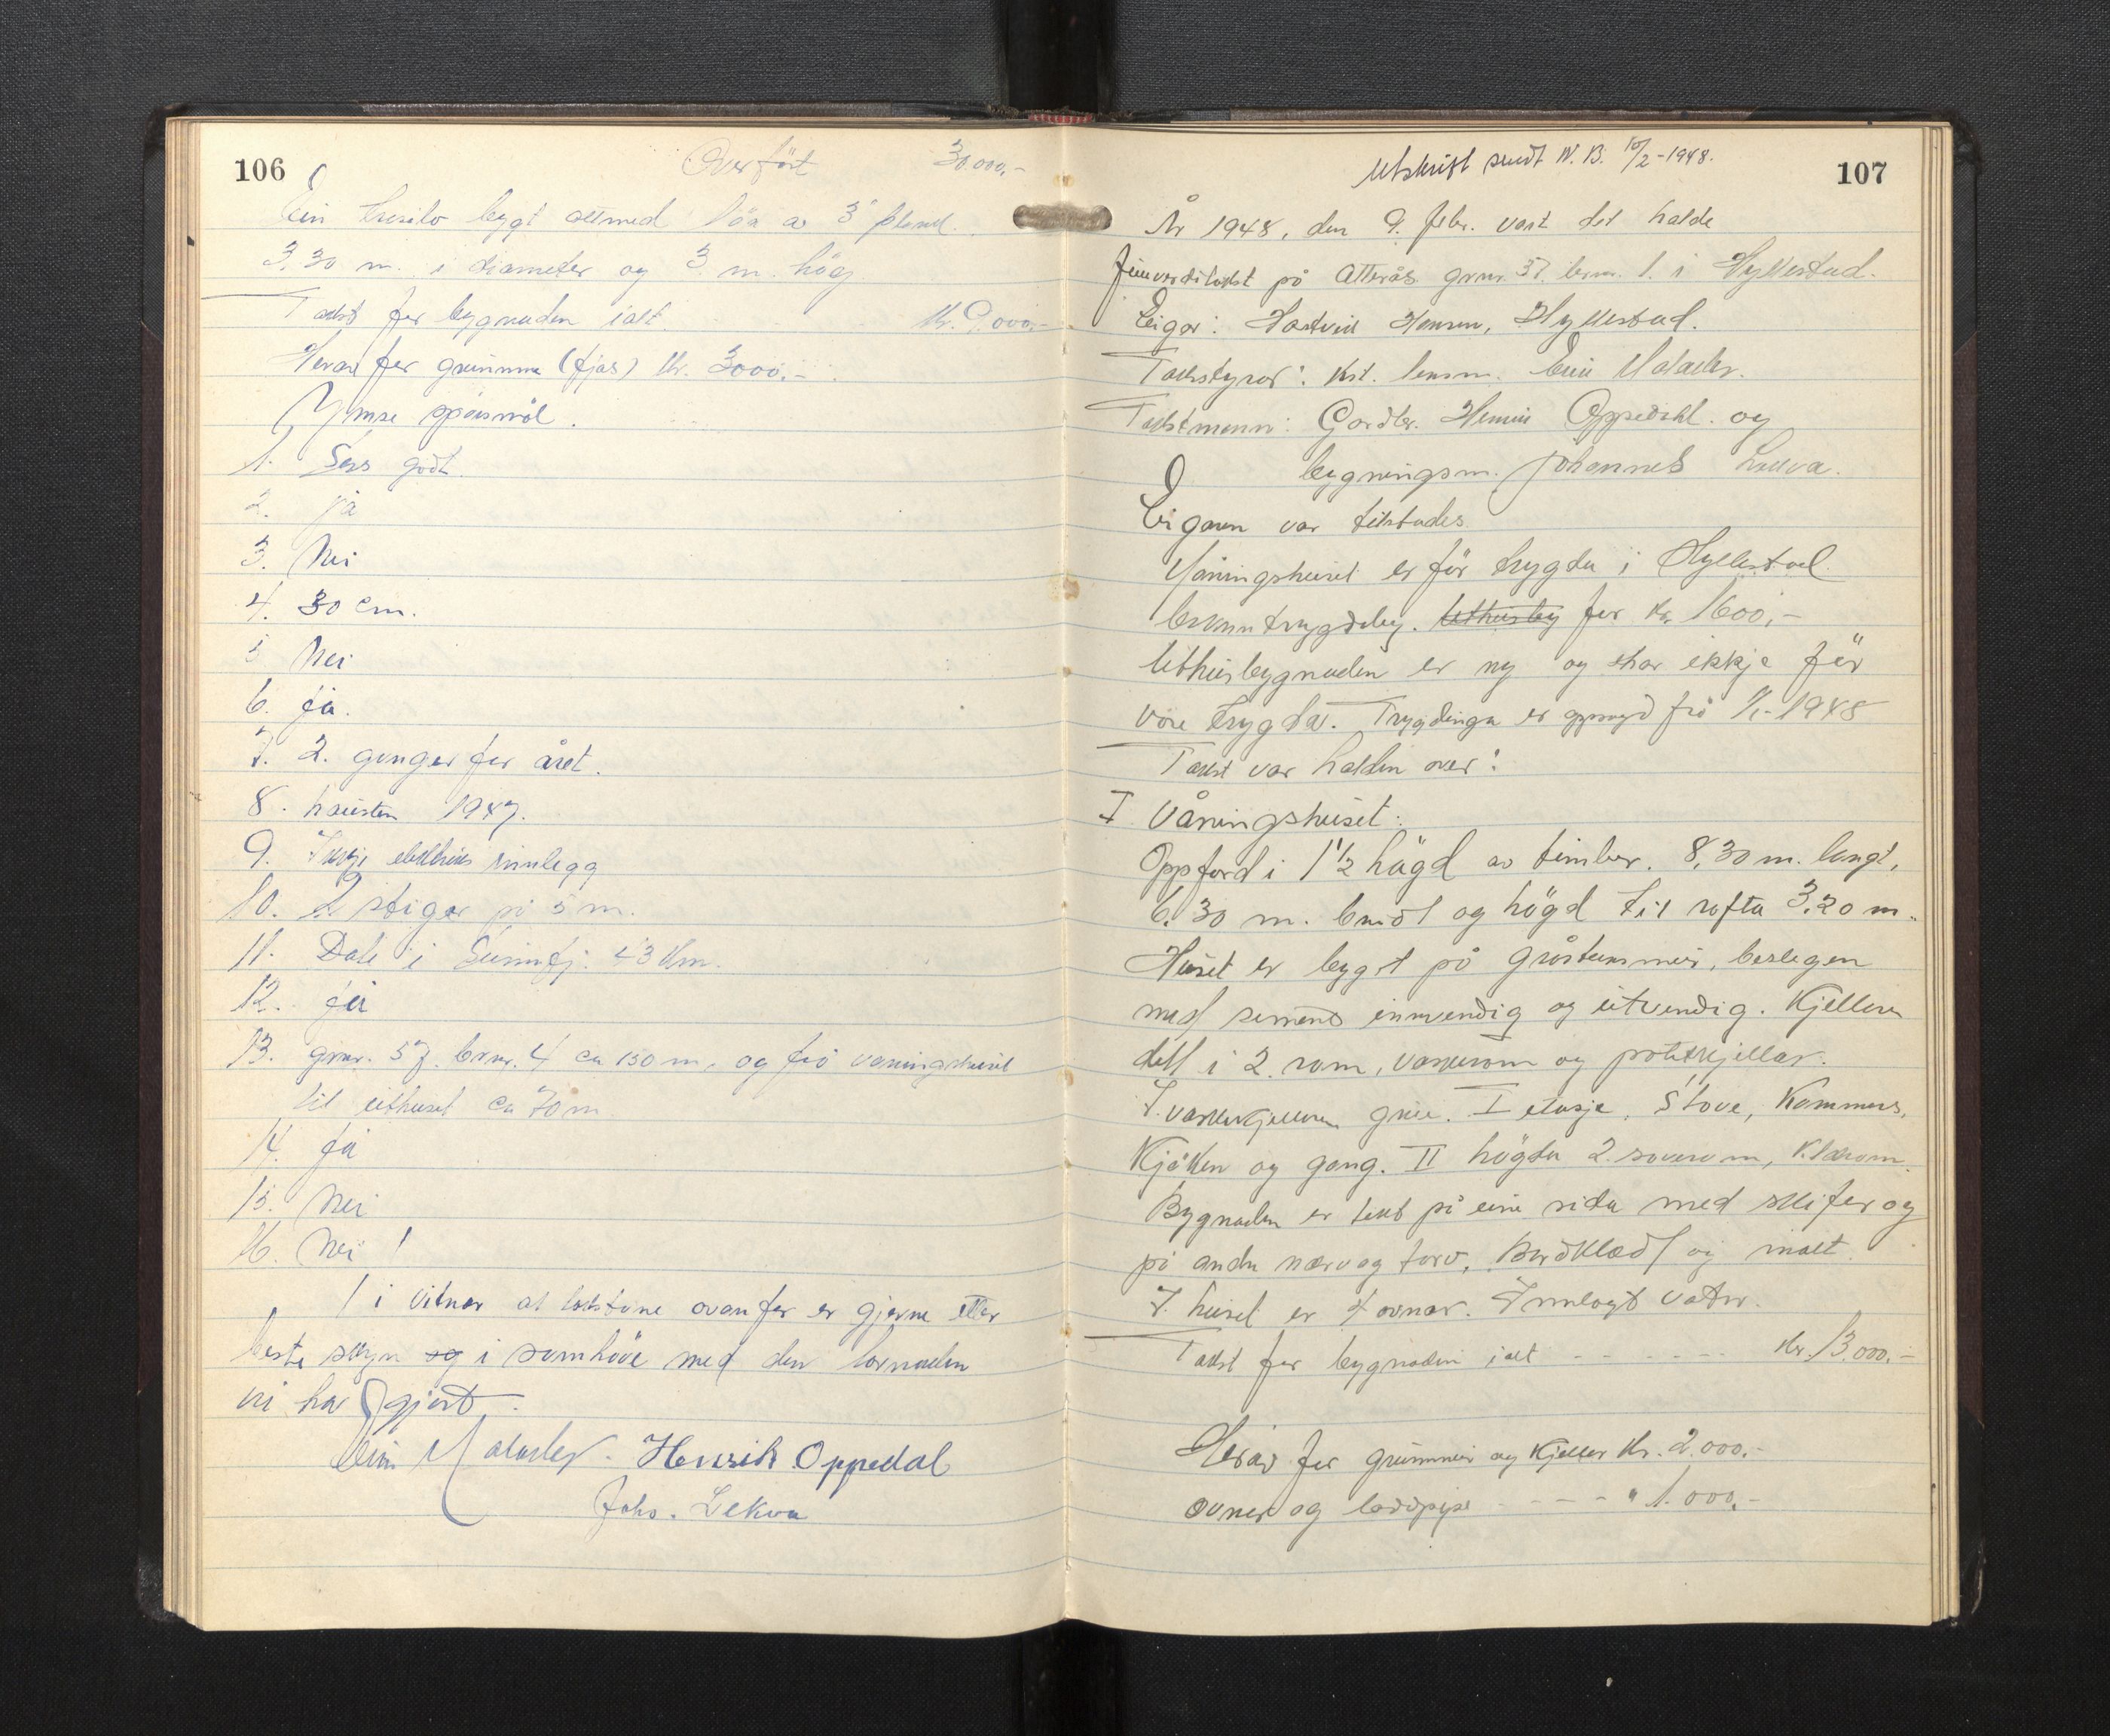 106
Overført 30.000,-
Ein tresilo bygt attmed löa av 3" plank.
3.30 m. i diameter og 3 m. høg
Takst for bygnaden ialt. Kr. 9.000,-
Herav for grunnmur (fjøs) Kr. 3000,-
Ymse spörsmål.
1. Sers godt.
2. ja
3. Nei
4. 30 cm.
5 Nei
6. ja.
7. 2. gonger for året.
8. hausten 1947.
9. Ikkje elektrisk innlegg
10. 2 stigar på 5 m.
11. Dale i Sunnfj. 43 km.
12. ja
13. gnr. 57. brnr. 4 ca 150 m, og frå våningshuset
til uthuset ca 70 m
14. ja
15. Nei
16. Nei!
Vi vitnar at takstane ovanfor er gjorne etter
beste skyn og i samhöve med den lovnaden
vi har gjort.
Henrik Oppedal
Johs. Lekva
107
Utskrift sendt N. B. 10/2-1948.
År 1948, den 9. febr. vart det halde
på Atterås gnr. 37. brnr. 1. i Hyllestad.
Eigar: Hartvik Hansen, Hyllestad.
Takstyrar: kst. lensm.
Takstmenn: Gardbr. Henrik Oppedal og
bygningsm. Johannes Lekva.
Eigaren var tilstades
Våningshuset er för trygda i Hyllestad
branntrygdelag. uthusbyg for kr. 1600,-
Uthusbygnaden er ny og har ikkje för
vore trygda. Trygdinga er oppsagd frå 1/1-1948
Takst var halden over:
I Våningshuset:
Oppförd i 1 1/2 högd av timber. 8,30 m. langt,
6,30 m. breidt og högd til rafta 3,20 m.
Huset er bygt på gråsteinsmur, beslegen
med sement innvendig og utvendig. Kjellaren
delt i 2 rom, vaskerom og potetkjellar.
I vaskekjellaren grue. I etasje. Stove, Kammers,
Kjöken og gang. II högda 2 soverom, klærom.
Bygnaden er tekt på eine sida med skifer og
på andre nævr og torv. Bordklædt og malt.
I huset er 4 ovnar. Innlagt vatn.
Takst for bygnaden ialt - - - - - - - Kr. 13.000,-
Herav for grunnmur og Kjeller Kr. 2.000,-
ovner og - - - - " 1.000,-